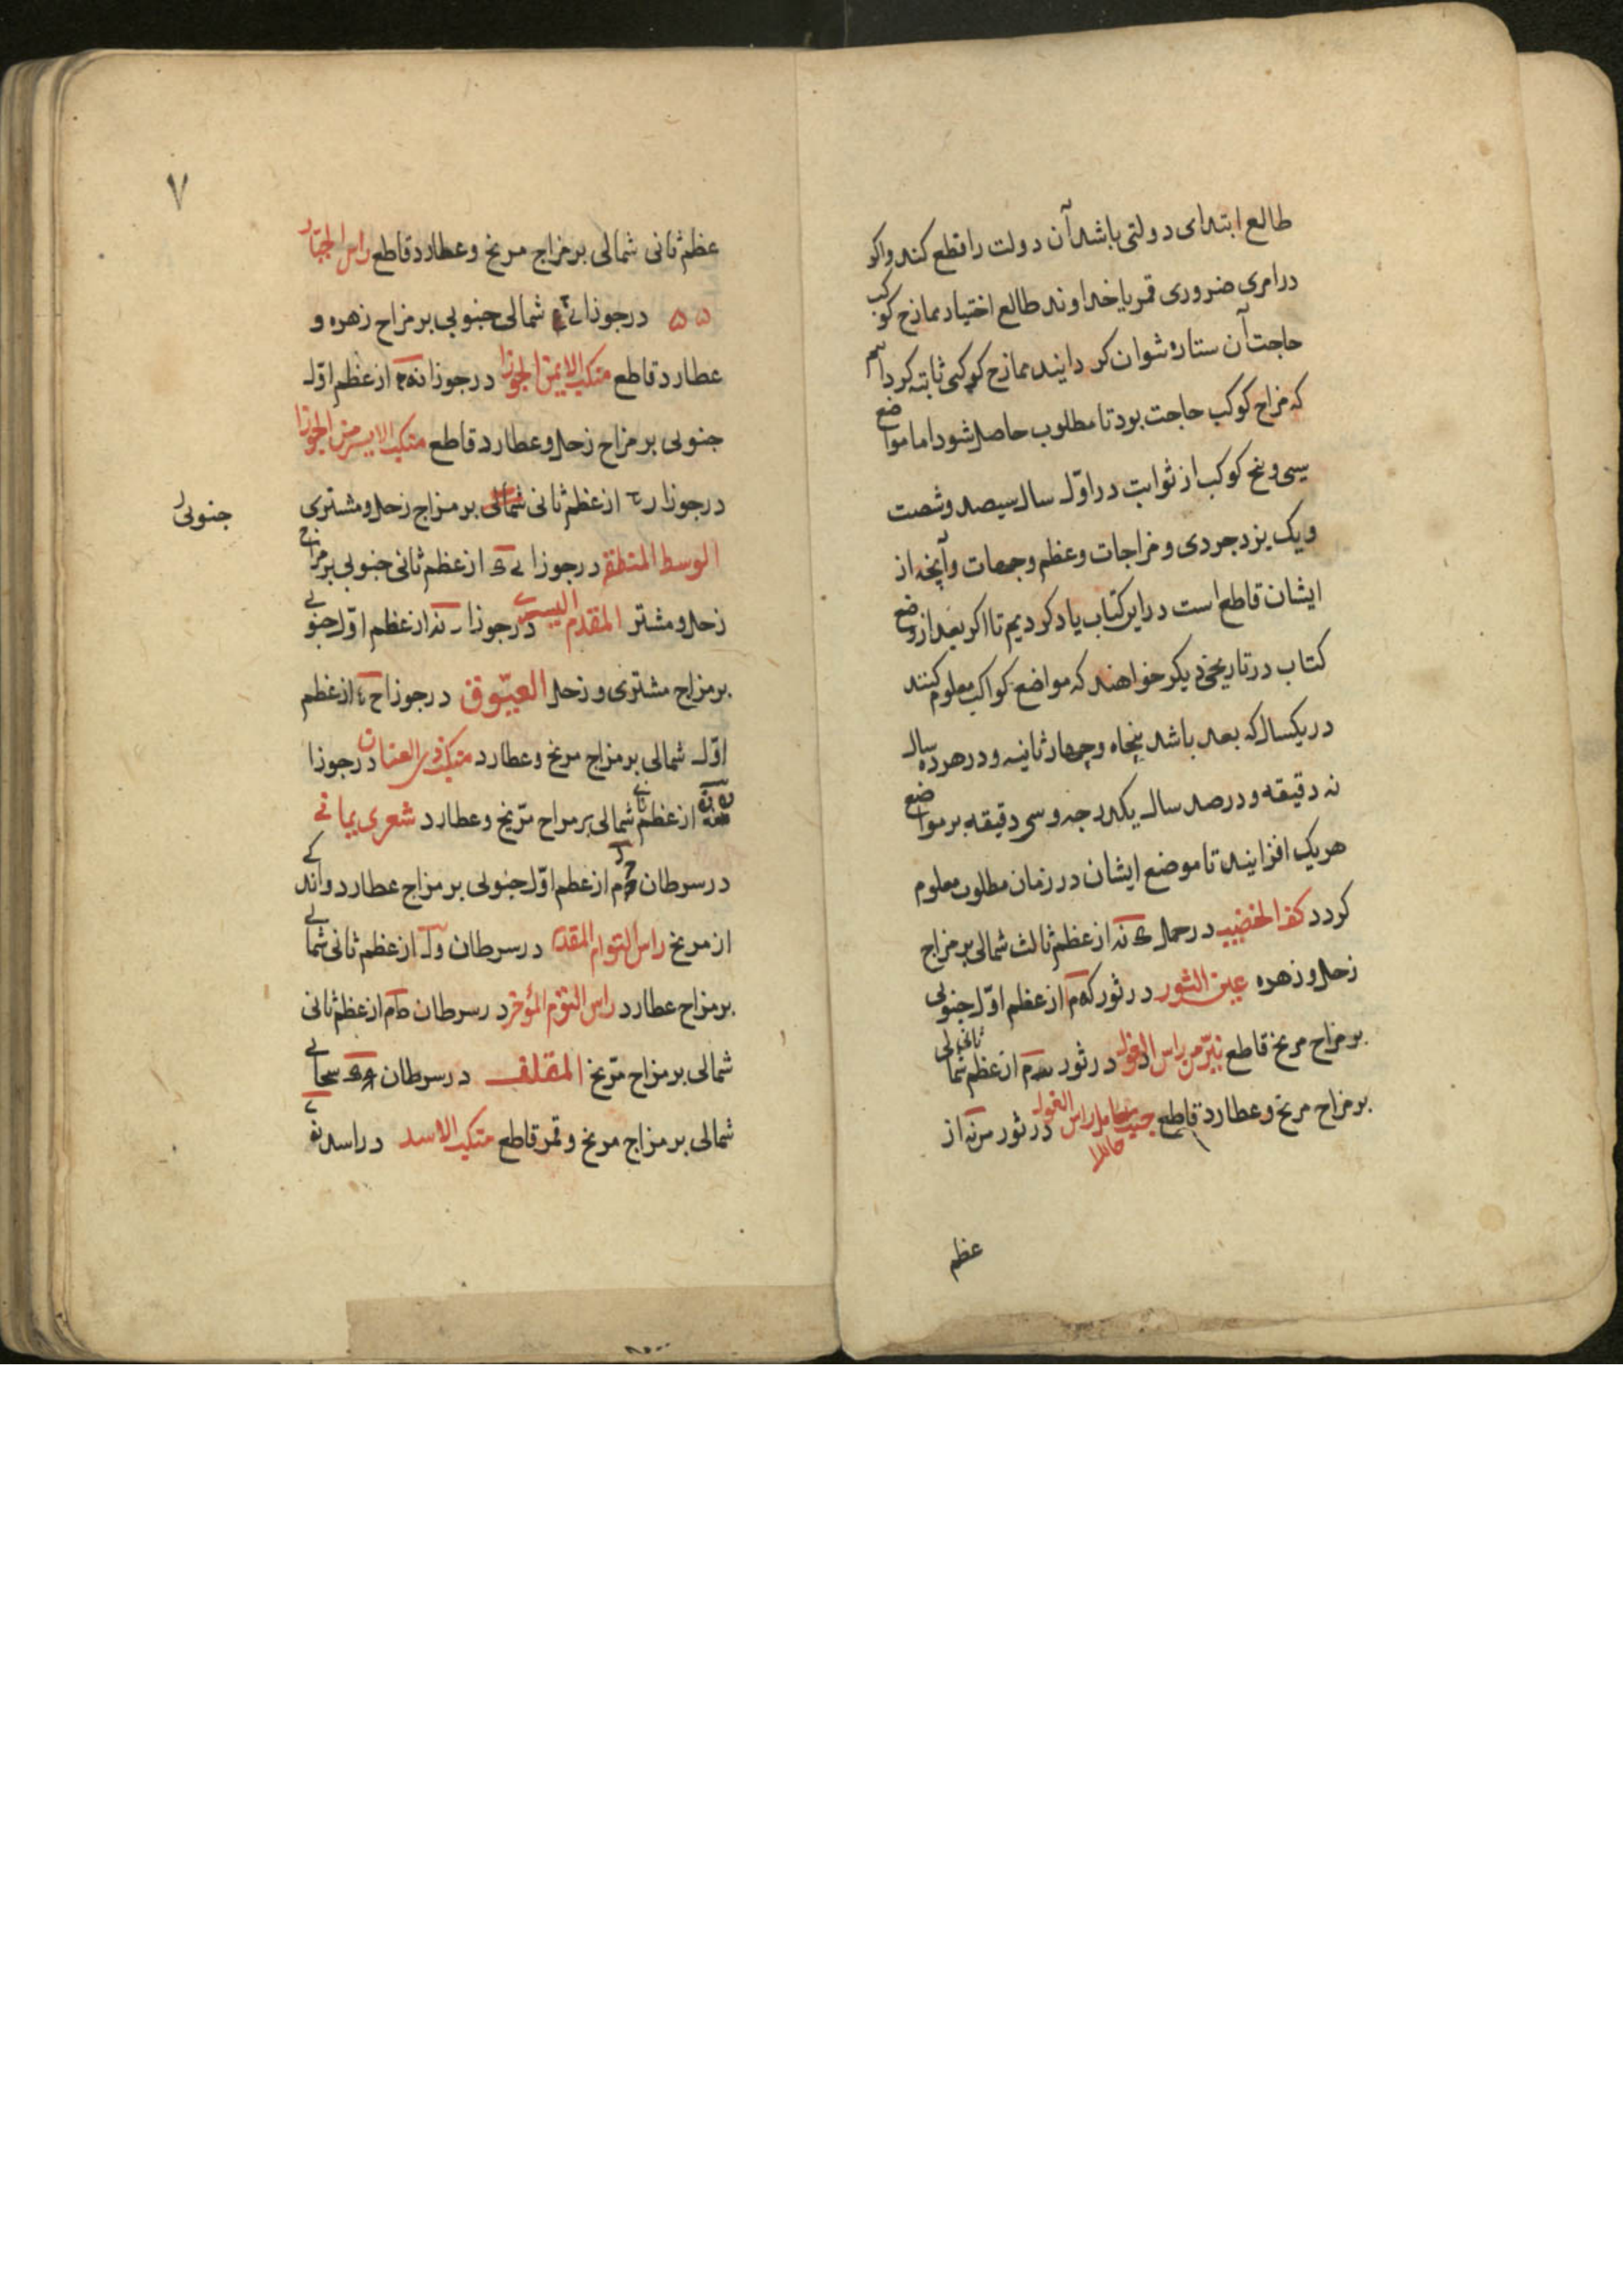 طالع ابتدای دولتی باشد آن دولت را قطع کند واکر
در امری ضروری قمر یا خداوند طالع اختیار ممازج کوکب
حاجت آن ستاره نتوان کردانید ممازج کوکبی ثابته کرداند
که مزاج کوکب حاجت بود تا مطلوب حاصل شود اما مواضع
سی و پنج کوکب از ثوابت در اول سال سیصد و شصت
و یک یزدجردی و مزاجات و عظم و جهات وآنچه از
ایشان قاطع است در این کتاب یاد کردیم تا اکر بعد از وضع
کتاب در تاریخی دیکر خواهند که مواضع کواکب معلوم کنند
در یکسال که بعد باشد پنجاه وچهار ثانیه و در هر ده سال
نه دقیقه و در صد سال یکدرجه و سی دقیقه بر مواضع
هر یک افزایند تا موضع ایشان در زمان مطلوب معلوم
کردد کف الخضیب در حمل نه از عظم ثالث شمالی بر مزاج
زحل و زهره عین الثور در ثور که م از عظم اول جنوبی
بر مزاج مریخ قاطع نیر من راس الغول در ثور از عظم ثانی شمالی
بر مزاج مریخ و عطارد قاطع جنب حامل راس الغول در ثور از
عظم
۷
عظم ثانی شمالی بر مزاج مریخ و عطارد قاطع راس الجبار
در جوزا شمالی جنوبی بر مزاج زهره و
عطارد قاطع منکب الایمن الجوزا در جوزا از عظم اول
جنوبی بر مزاج زحل و عطارد قاطع منکب الایسر من الجوزا
در جوزا از عظم ثانی شمالی بر مزاج زحل و مشتری
جنوبی
الوسط المنطقه در جوزا از عظم ثانی جنوبی بر مزاج
زحل و مشتر المقدم در جوزا از عظم اول جنوبی
بر مزاج مشتری و زحل العیوق در جوزا از عظم
اول شمالی بر مزاج مریخ و عطارد منکب ذی العنان در جوزا
از عظم ثانی شمالی بر مزاج مریخ و عطارد شعری یمانی
در سرطان از عظم اول جنوبی بر مزاج عطارد و اندکی
از مریخ راس التوام المقدم در سرطان از عظم ثانی شمالی
بر مزاج عطارد راس التوم المؤخر در سرطان از عظم ثانی
شمالی بر مزاج مریخ المقلف در سرطان سحابی
شمالی بر مزاج مریخ و قمر قاطع منکب الاسد در اسد